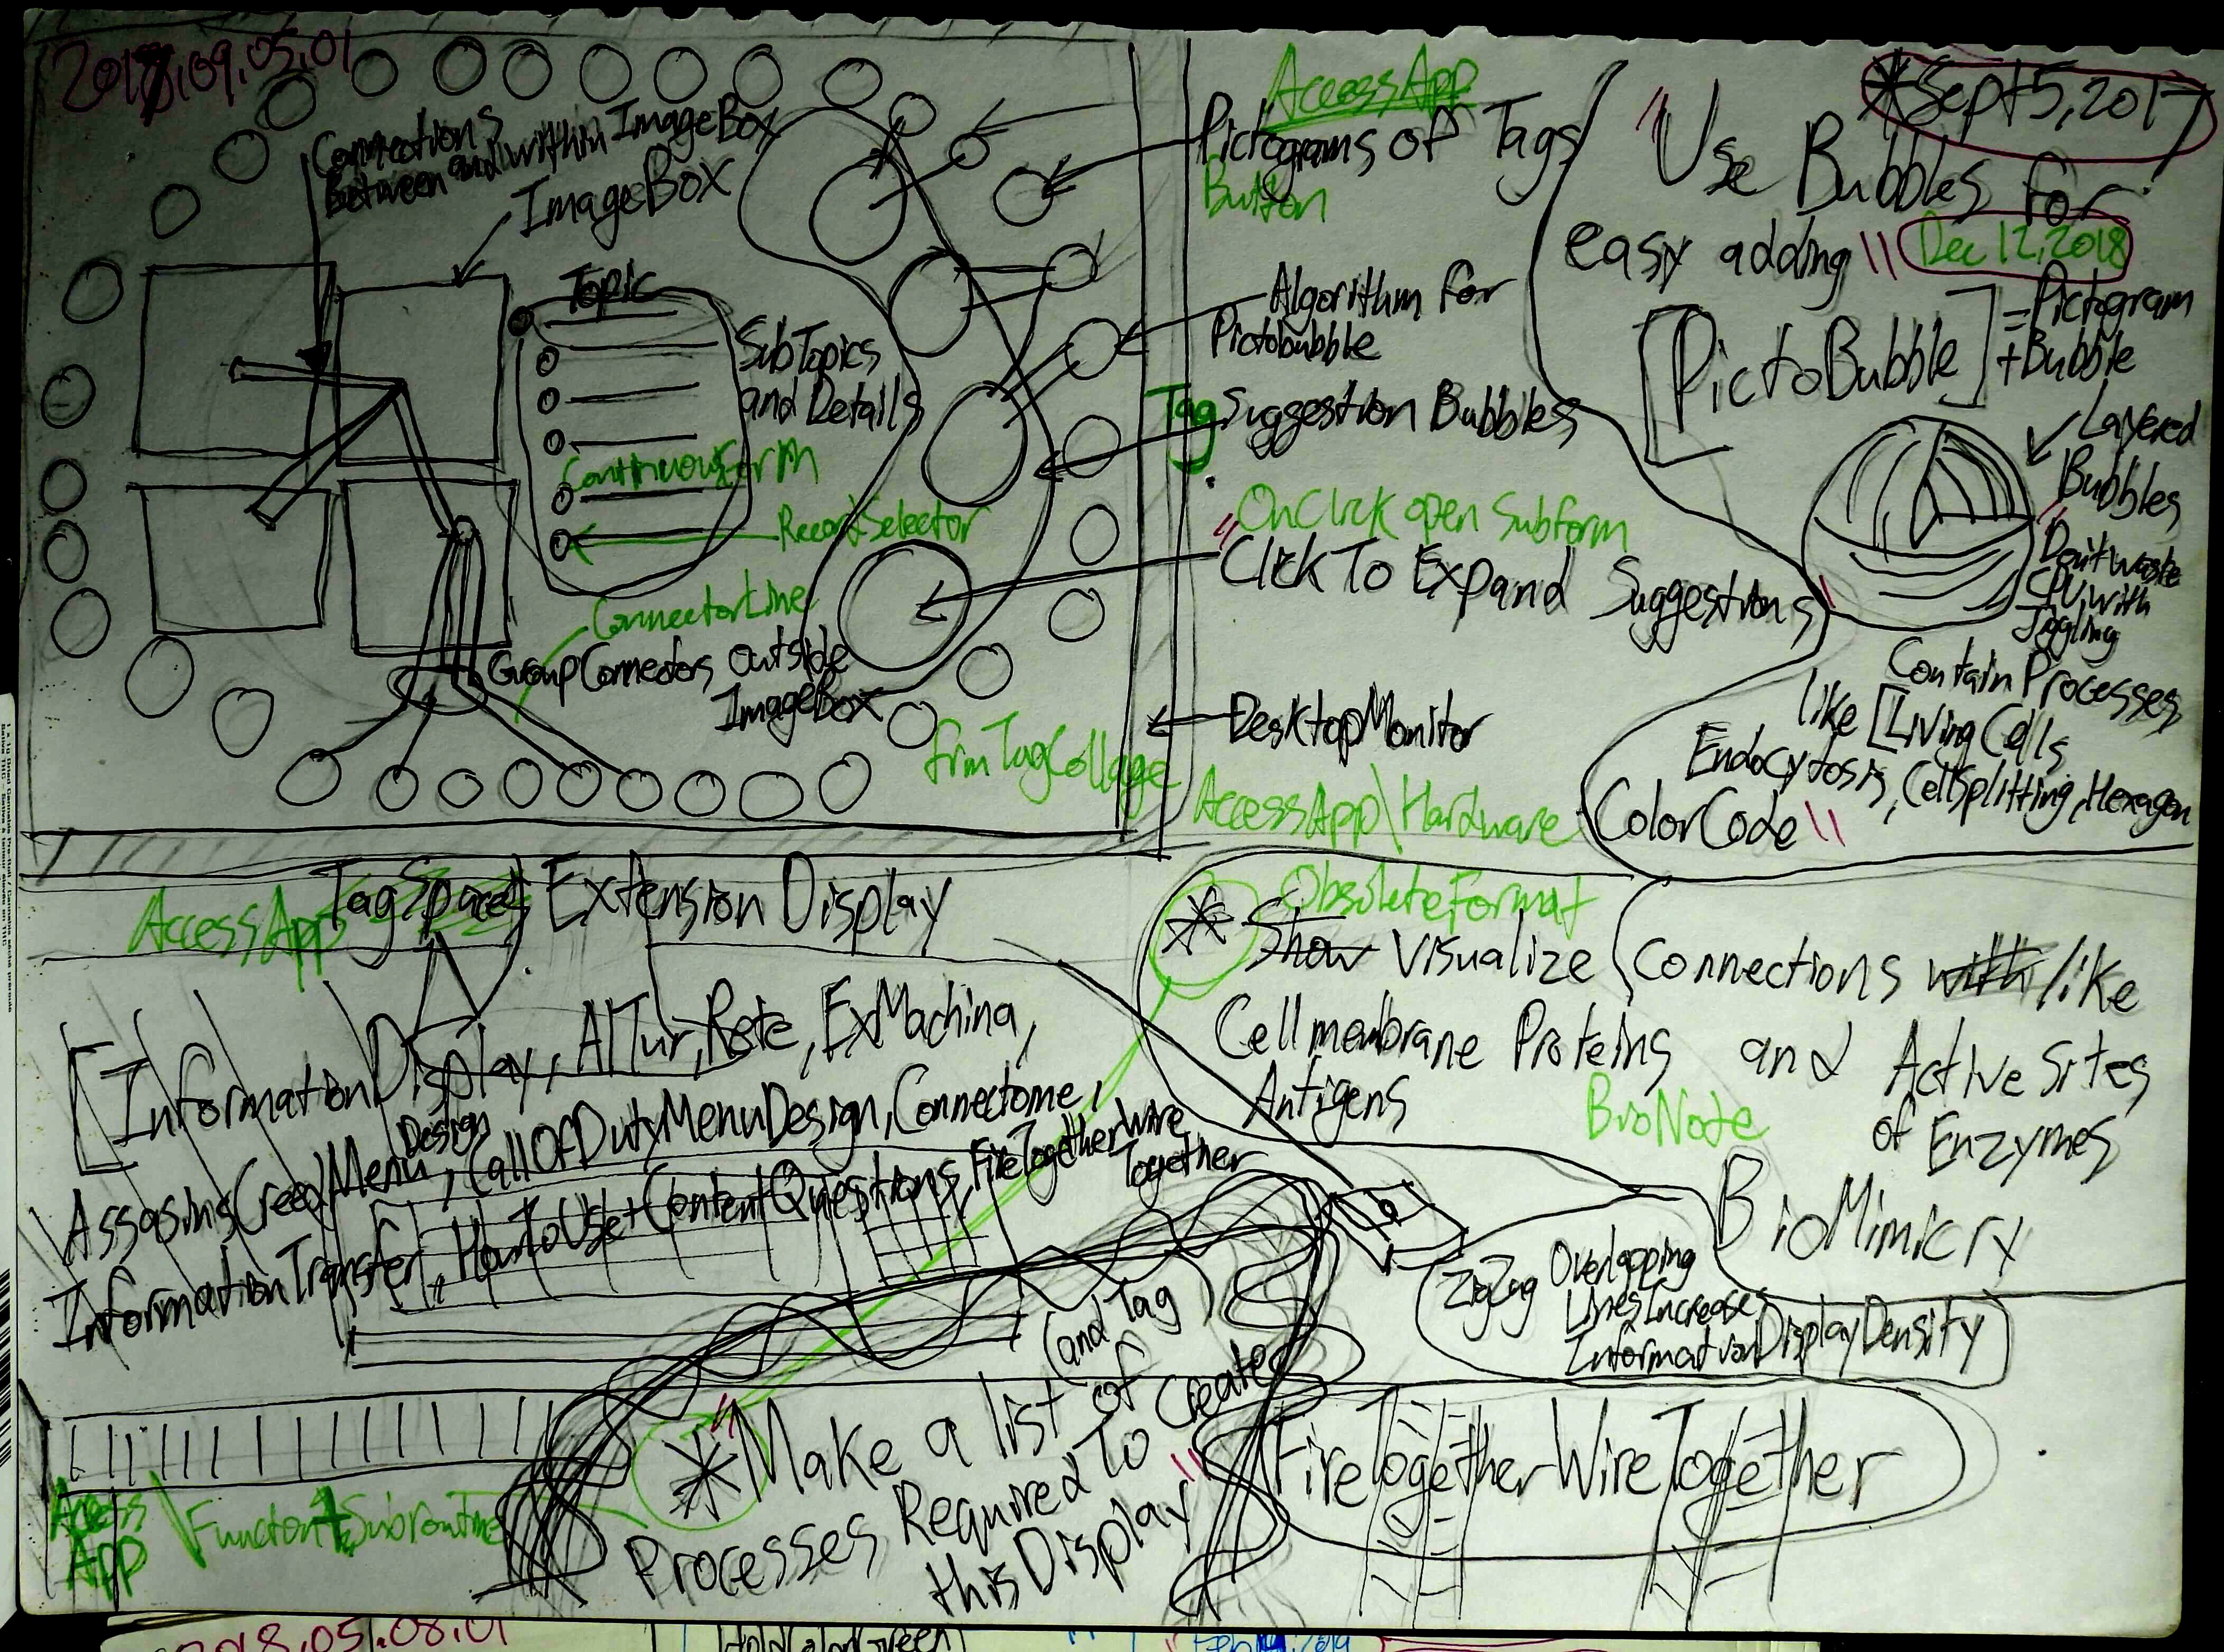 2017.09.05.01
Connections
Between and within ImageBox
ImageBox
Topic
SubTopics
and Details
ContinuousForm
RecordSelector
ConnectorLine
GroupConnectors Outside
ImageBox
frmTagCollage
AccessApp
Pictograms of Tags
Button
Algorithm for
Pictobubble
Tag Suggestion Bubbles
"OnClick open Subform
Click To Expand Suggestions"
DesktopMonitor
AccessApp\Hardware
*Sept 5, 2017
"Use Bubbles for
easy adding"
Dec 12, 2018
[PictoBubble] = Pictogram
+ Bubble
Layered
Bubbles
"Don't waste
CPU with
Jiggling
Contain Processes
like [Living Cells
Endocytosis, CellSplitting, Hexagon
ColorCode"
AccessApp TagSpaces Extension Display
[InformationDisplay, AITur, Rete, ExMachina,
AssasinsCreedMenu Design, CallOfDutyMenuDesign, Connectome,
InformationTransfer, HowToUse+ContentQuestions, FireTogetherWire
Together
ObsoleteFormat
* Show Visualize Connections with like
Cell membrane Proteins and Active Sites
of Enzymes
Antigens
BioNote
BioMimicry
ZigZag Overlapping
Lines Increases
InformationDisplayDensity
FireTogetherWireTogether
"*Make a list of (and Tag)
Processes Required To Create
this Display"
Access
App \Function+Subroutine
2018.05.08.01